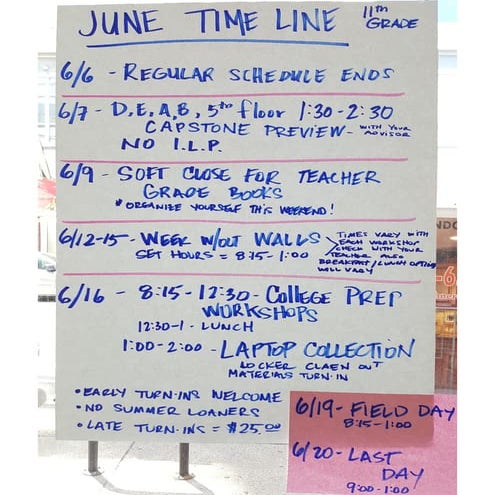 JUNE TIME LINE 11th GRADE
6/6 - REGULAR SCHEDULE ENDS
6/7 - D, E, A, B, 5th floor 1:30-2:30
CAPSTONE PREVIEW - WITH YOUR ADVISOR
NO I.L.P.
6/9 - SOFT CLOSE FOR TEACHER
GRADE BOOKS
* ORGANIZE YOURSELF THIS WEEKEND!
6/12-15 - WEEK W/OUT WALLS
SET HOURS = 8:15 - 1:00
TIMES VARY WITH
EACH WORKSHOP
CHECK WITH YOUR
TEACHER ALSO
BREAKFAST/LUNCH OPTIONS
WILL VARY
6/16 - 8:15-12:30 - COllEGE PREP
WORKSHOPS
12:30-1 - LUNCH
1:00-2:00 - LAPTOP COLLECTION
LOCKER CLAEN OUT
MATERIALS TURN-IN
• EARLY TURN-INS WELCOME
• NO SUMMER LOANERS
• LATE TURN-INS = $25.00
6/19 - FIELD DAY
8:15-1:00
6/20 - LAST
DAY
9:00-1:00